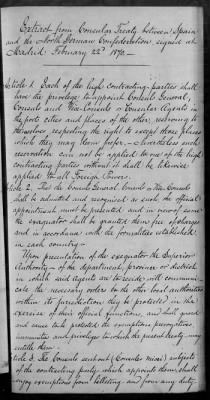 Extract from Consular Treaty between Spain
and the North German Confederation signed at
Madrid February 22d 1870 —
Article 1. Each of the high contracting parties shall
have the privilege to appoint Consuls General,
Consuls and Vice-Consuls or Consular Agents in
the ports cities and places of the other, reserving to
themselves respecting the right to except those places
which they may deem proper. — Nevertheless such
reservation can not be applied to one of the high
contracting parties without it shall be likewise
applied to all Foreign Powers.
Article 2. That the Consuls General Consuls & Vice Consuls
shall be admitted and recognised as such, the official
appointment must be presented and in view of same
the exequatur shall be granted them free of charges
and in accordance with the formalities established
in each country —
Upon presentation of the exequatur the Superior
Authority of the department, province or district
in which said Agents are to reside will communi-
cate the necessary orders to the other local authorities
within its jurisdiction they be protected in the
exercise of their official functions, and shall guard
and cause to be protected the exemptions prerogatives
immunities and privileges to which the present treaty may
entitle them.
Article 3. The Consuls sent out (Consules missi) subjects
of the contracting party which appoints them, shall
enjoy exemptions from billetting and from any duty